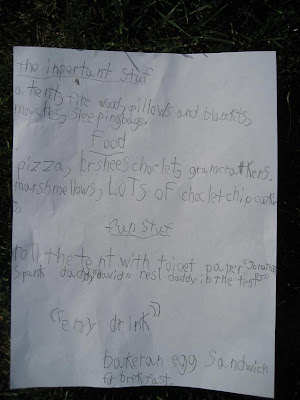 the inportant stuf
a tent, fire wood, pillows and blankits,
sleepingbags.
Food
pizza, hersheeschoclet, gramcrackers,
marshmellows, LOTS OF chocletchip cooki
s
Fun stuf
roll the tent with toilet paper
spank daddy "david" resl daddy in the tent
eny drink
bakeran egg sandwich
fo brekfast.